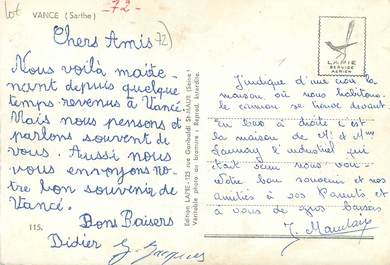 lot
VANCE (Sarthe)
-72-
Chers Amis
72
Nous voilà maite-
nant depuis quelque
temps revenus à Vancé.
Mais nous pensons et
parlons souvent de
vous. Aussi nous
vous envoyons no-
tre bon souvenir de
Vancé.
Bons Baisers
115.
Didier J. Jacques
Edition LAPIE - 123 rue Garibaldi St-MAUR (Seine)
Véritable photo au bromure : Reprod. Interdite.
LAPIE
SERVICE
AERIEN
J'indique d'une croix la
maison où nous habitons.
le camion se trouve devant
en bas à droite c'est
la maison de Mr et Mme
Launay l'industriel qui
était venu nous voir.
Notre bon souvenir et nos
amitiés à vos Parents et
à vous de gros baisers